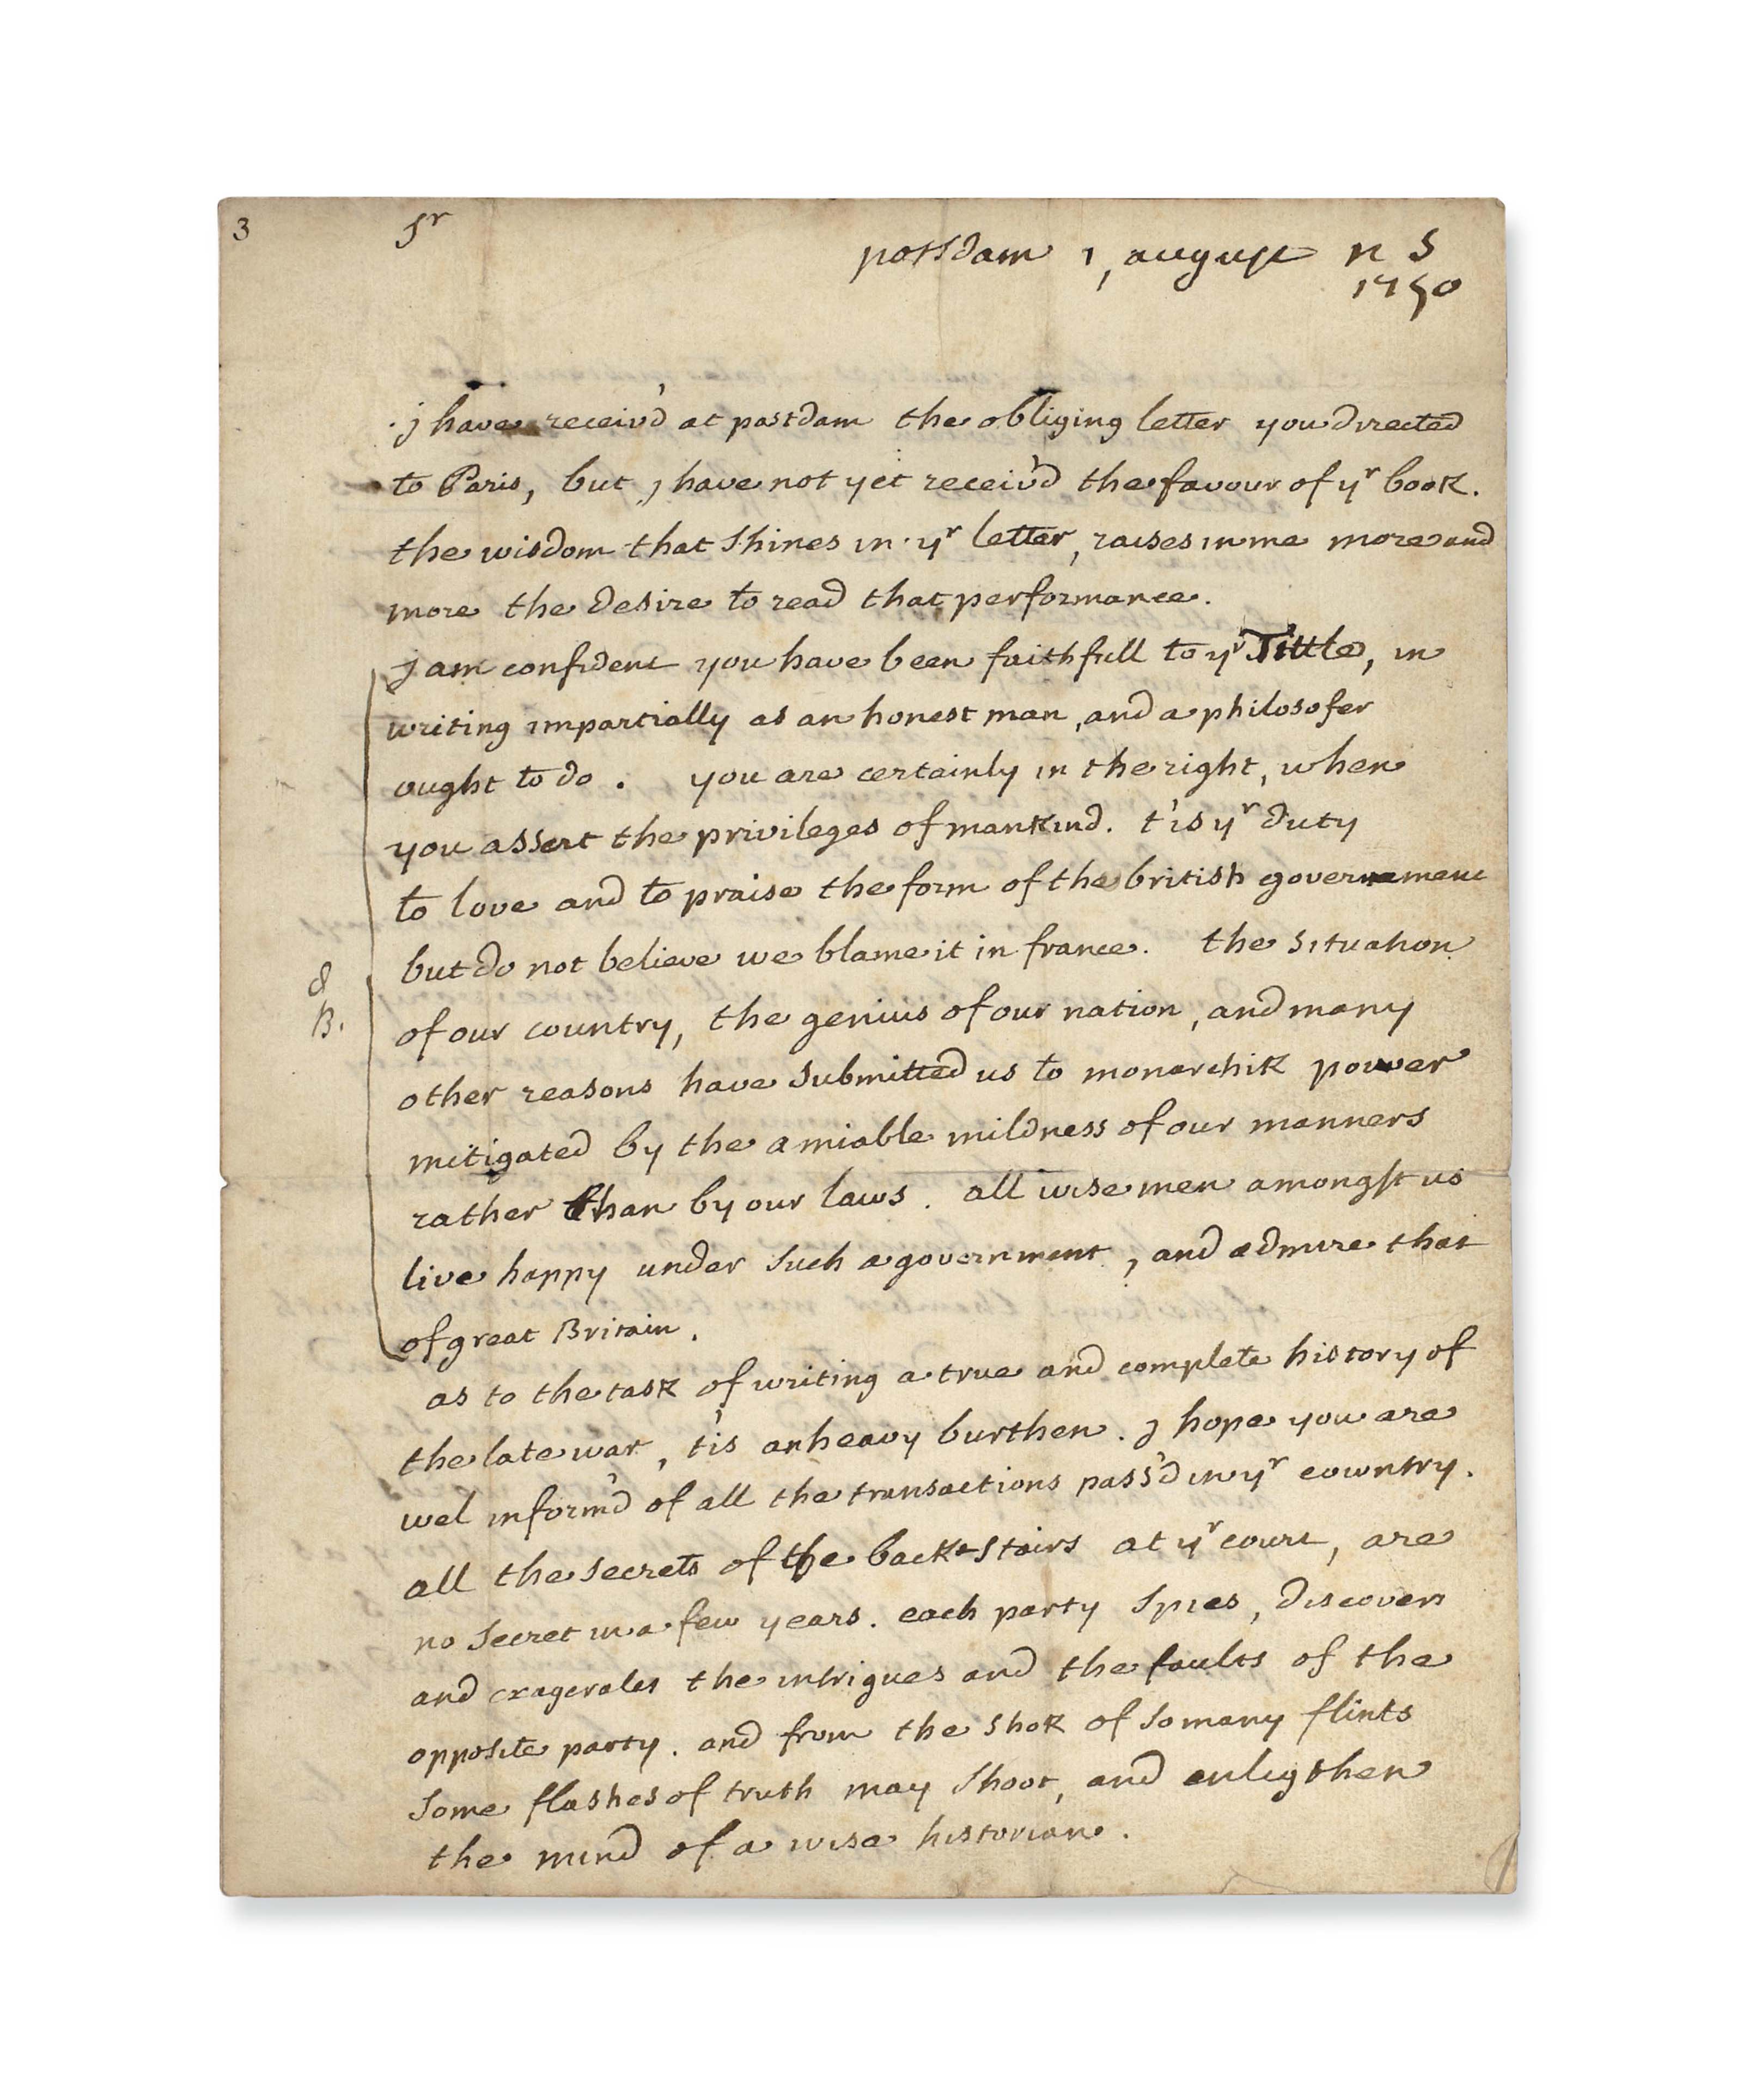 3
Sr
postdam 1, august n S
1750
j have receiv'd at postdam the obliging letter you directed
to Paris, but j have not yet receiv'd the favour of yr book.
the wisdom that shines in yr letter, raises in me more and
more the desire to read that performance.
j am confident you have been faithfull to yr Tittle, in
writing impartially as an honest man, and a philosofer
ought to do. you are certainly in the right, when
you assert the privileges of mankind. t'is yr duty
to love and to praise the form of the british governement
but do not believe we blame it in france. the situation
8
B.
of our country, the genius of our nation, and many
other reasons have submitted us to monarchik power
mitigated by the amiable mildness of our manners
rather than by our laws. all wise men amongst us
live happy under such a government, and admire that
of great Britain.
as to the task of writing a true and complete history of
the late war, t'is an heavy burthen. j hope you are
wel inform'd of all the transactions pass'd in yr cowntry.
all the secrets of the back-stairs at yr court, are
no secret in a few years. each party spies, discovers
and exagerates the intrigues and the faults of the
opposite party. and from the shok of so many flints
some flashes of truth may shoot, and enligthen
the mind of a wise historian.